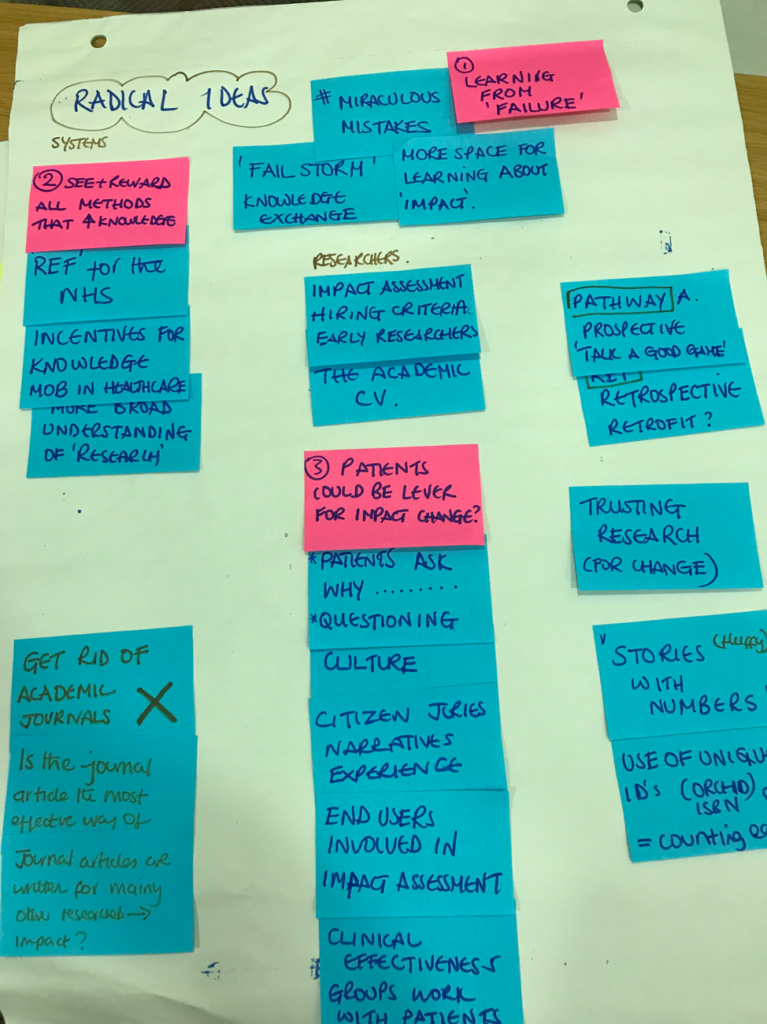 RADICAL IDEAS
# MIRACULOUS
MISTAKES
① LEARNING
FROM
'FAILURE'
'FAIL STORM'
KNOWLEDGE
EXCHANGE
MORE SPACE FOR
LEARNING ABOUT
'IMPACT'.
SYSTEMS
② SEE + REWARD
ALL METHODS
THAT ↑ KNOWLEDGE
REF' for the
NHS
INCENTIVES FOR
KNOWLEDGE
MOB IN HEALTHCARE
MORE BROAD
UNDERSTANDING
OF 'RESEARCH'
RESEARCHERS.
IMPACT ASSESSMENT
HIRING CRITERIA
EARLY RESEARCHERS
THE ACADEMIC
CV.
PATHWAY A.
PROSPECTIVE
'TALK A GOOD GAME'
REF
RETROSPECTIVE
RETROFIT?
③ PATIENTS
COULD BE LEVER
FOR IMPACT CHANGE?
*PATIENTS ASK
WHY .........
*QUESTIONING
CULTURE
CITIZEN JURIES
NARRATIVES
EXPERIENCE
END USERS
INVOLVED IN
IMPACT ASSESSMENT
CLINICAL
EFFECTIVENESS
GROUPS WORK
WITH PATIENTS
TRUSTING
RESEARCH
(FOR CHANGE)
STORIES (fluffy)
WITH
NUMBERS
USE OF UNIQU
ID's (ORCHID)
ISBN
= counting
GET RID OF
ACADEMIC
JOURNALS X
Is the journal
article the most
effective way of
Journal articles are
written for mainly
other researchers →
impact?